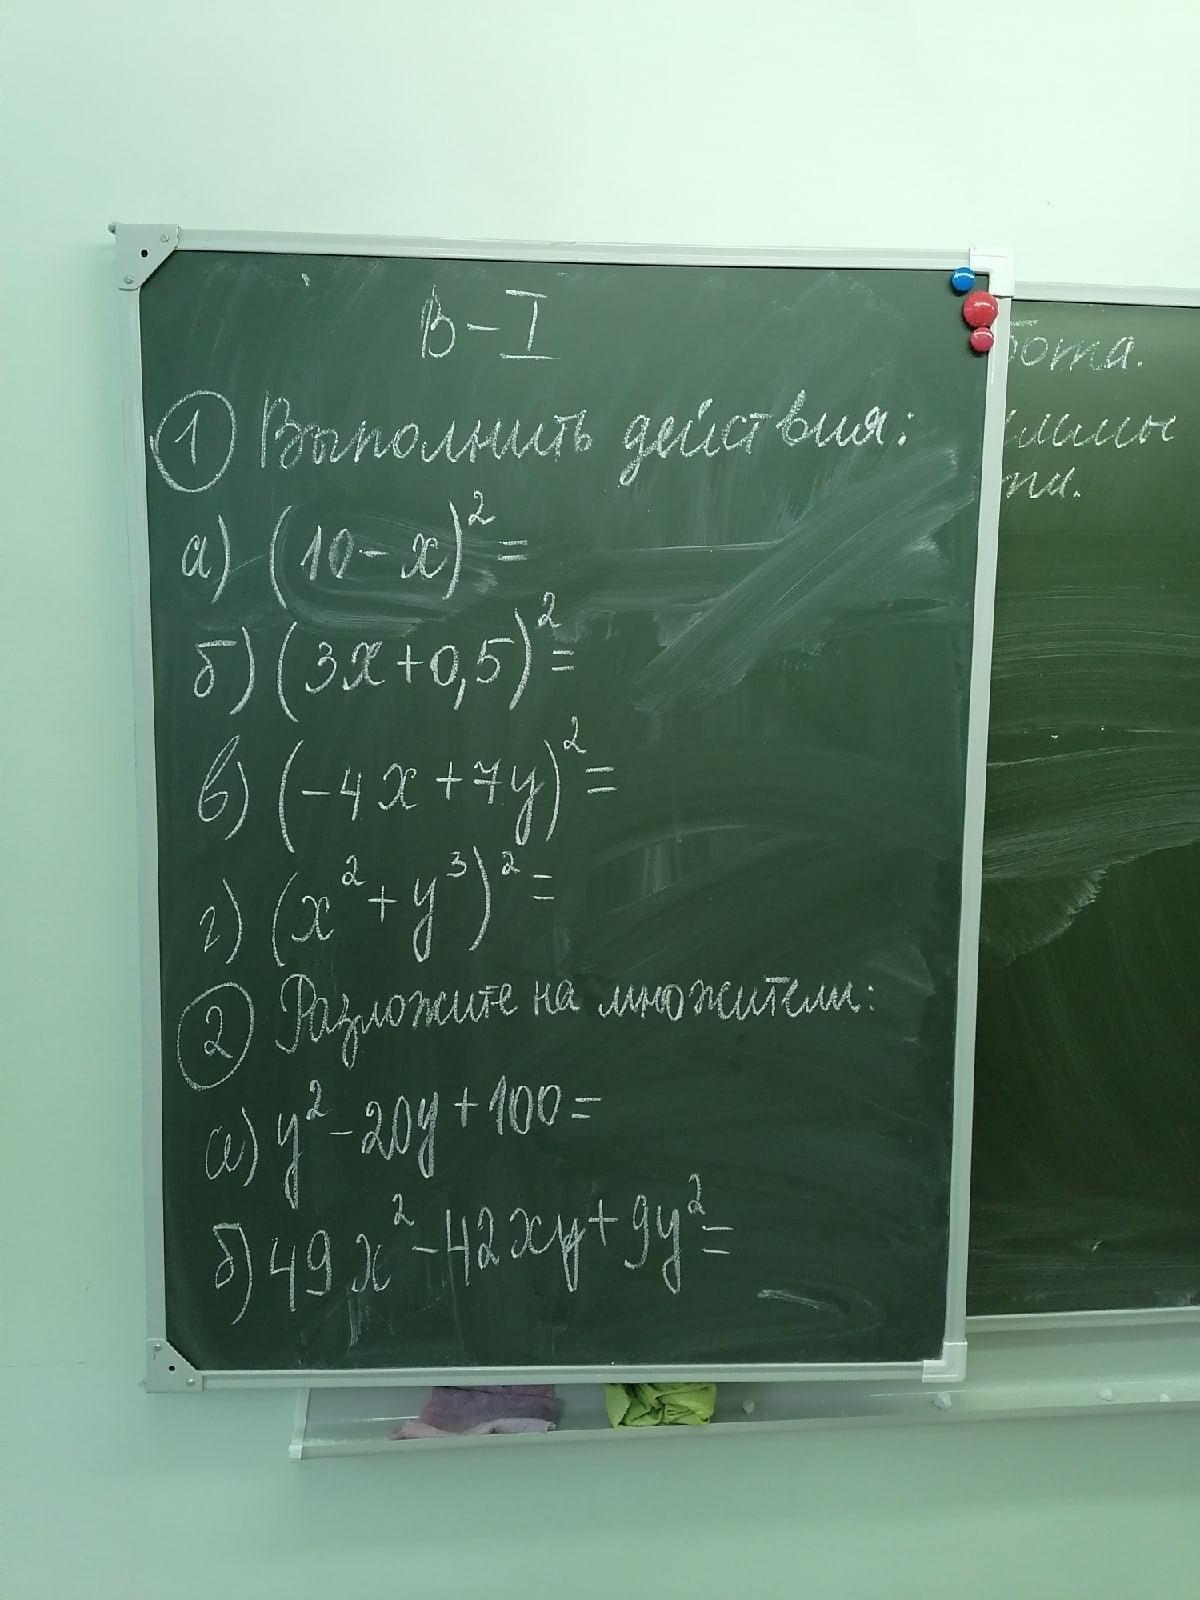 В-I
① Выполнить действия:
а) (10-x)²=
б) (3x+0,5)²=
в) (-4x+7y)²=
г) (x²+y³)²=
② Разложите на множители:
а) y²-20y+100=
б) 49x²-42xy+9y²=
бота.